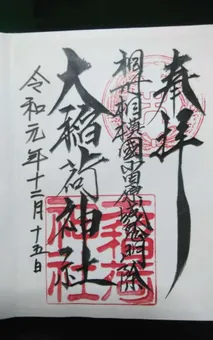 奉拝
相模國小田原城
大稲荷神社
令和元年十二月十五日
大稲荷
神社